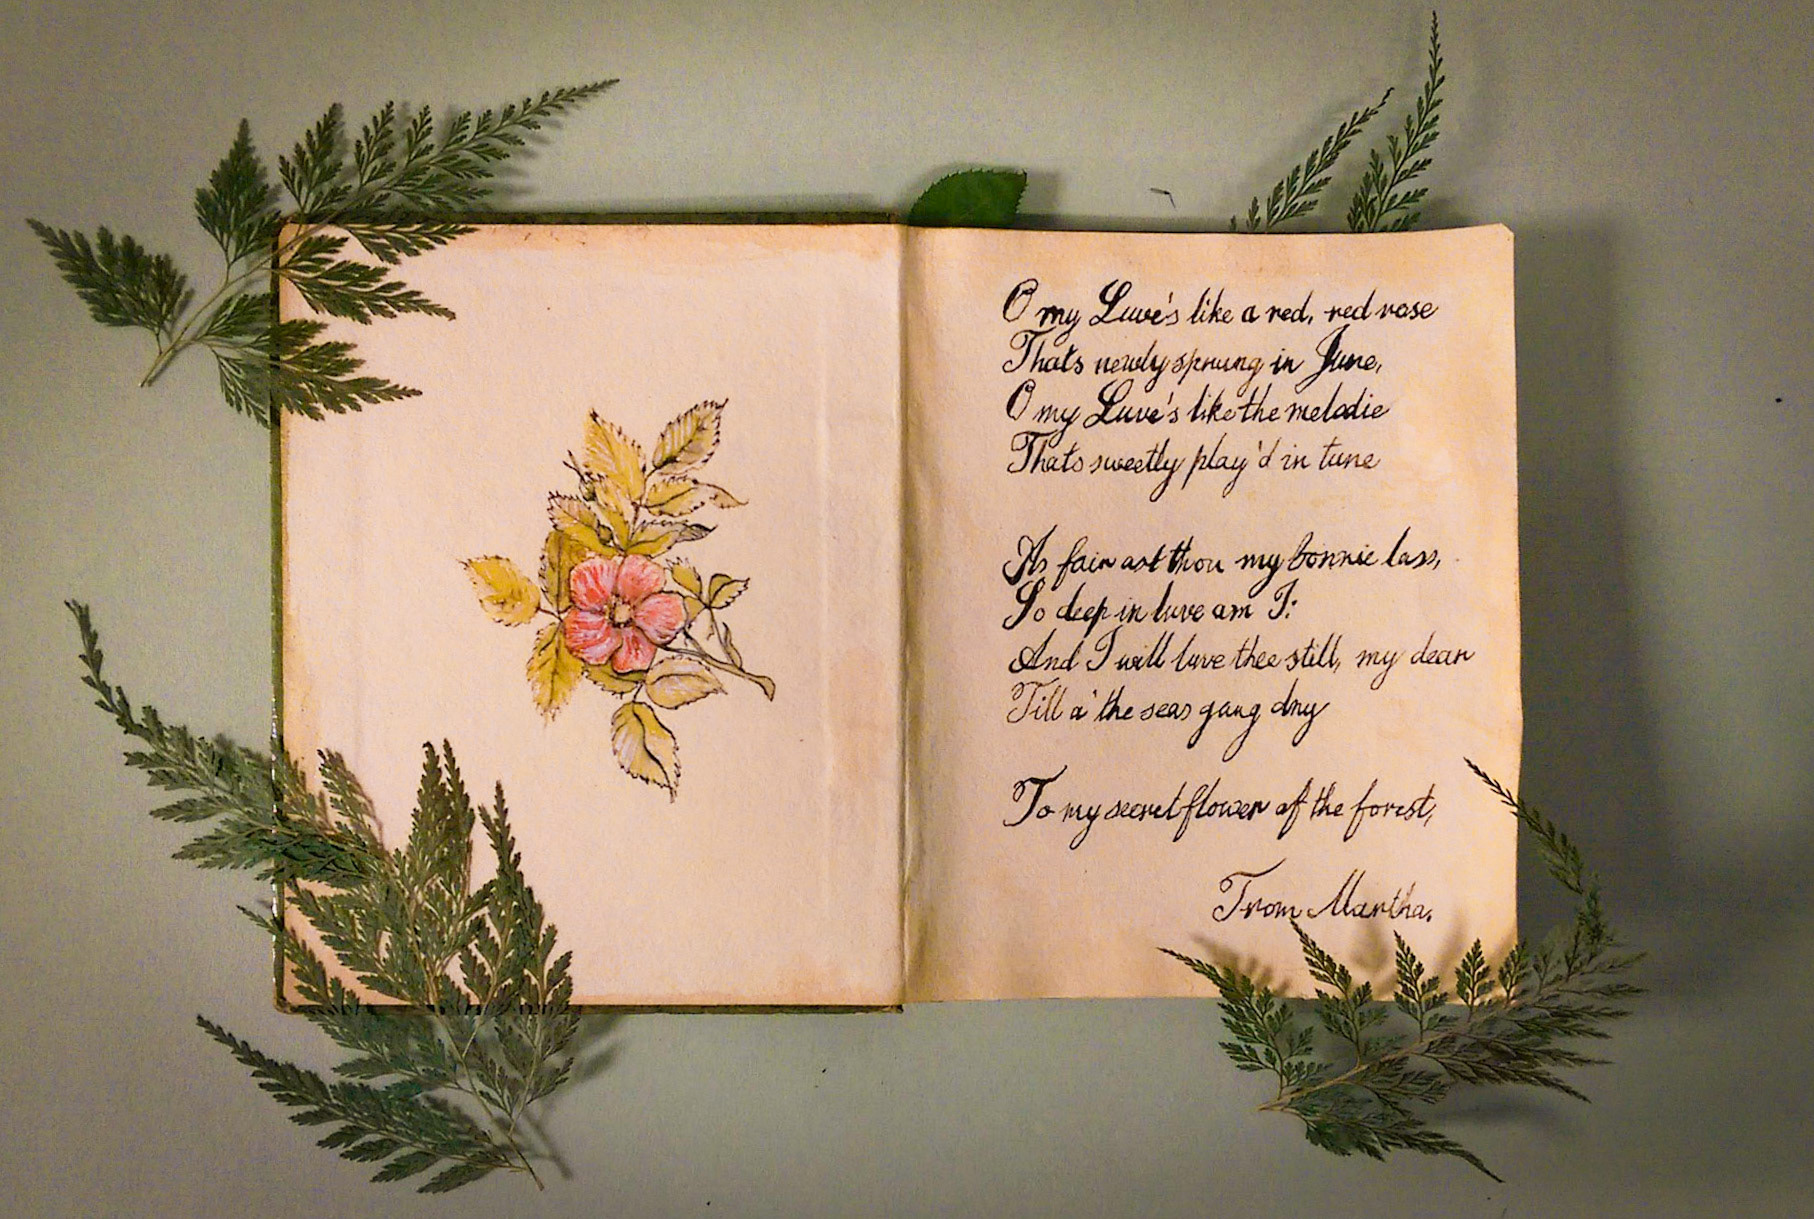 O my Luve's like a red, red rose
Thats newly sprung in June,
O my Luve's like the melodie
Thats sweetly play'd in tune
As fair art thou my bonnie lass,
So deep in luve am I:
And I will luve thee still, my dear
Till a' the seas gang dry
To my secret flower of the forest,
From Martha.